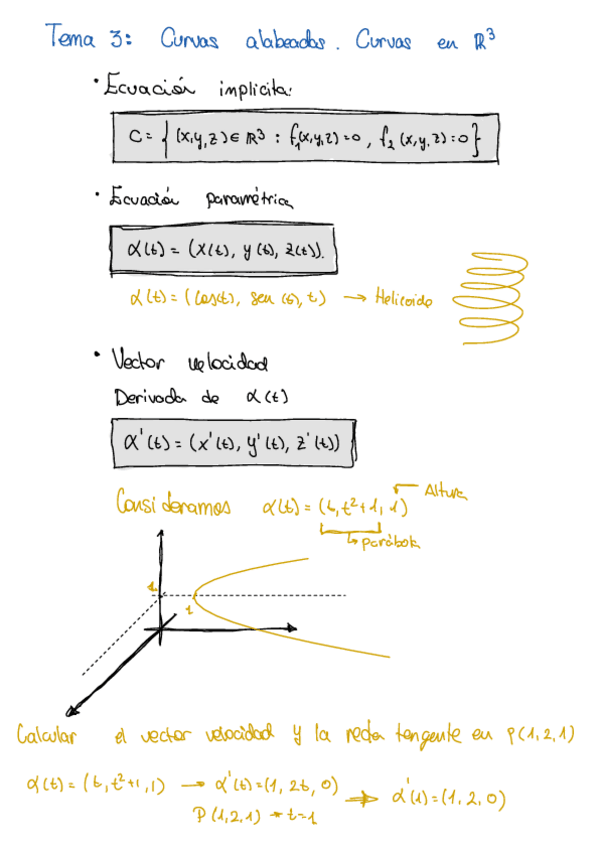 Tema 3: Curvas alabeadas. Curvas en ℝ³
• Ecuación implícita:
C = { (x,y,z) ∈ ℝ³ : f₁(x,y,z)=0 , f₂(x,y,z)=0 }
• Ecuación paramétrica
α(t) = (x(t), y(t), z(t)).
α(t) = (cos(t), sen(t), t) → Helicoide
• Vector velocidad
Derivada de α(t)
α'(t) = (x'(t), y'(t), z'(t))
Consideramos α(t) = (t, t²+1, 1) Altura
↳ parábola
1
1
Calcular el vector velocidad y la recta tangente en P(1,2,1)
α(t) = (t, t²+1, 1) → α'(t) = (1, 2t, 0) → α'(1) = (1, 2, 0)
P(1,2,1) → t=1